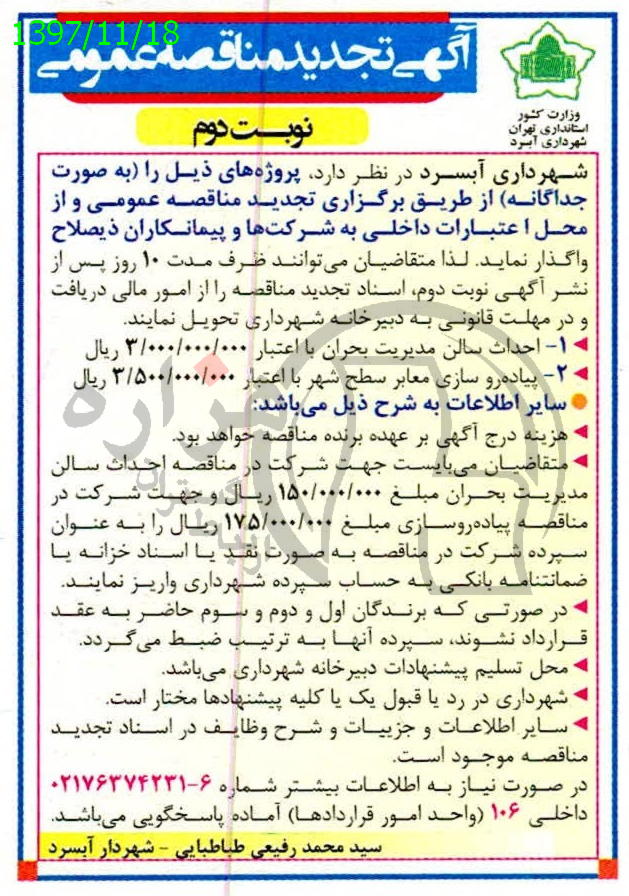 1397/11/18
آگهی تجدید مناقصه عمومی
وزارت کشور
استانداری تهران
شهرداری آبسرد
نوبت دوم
شهرداری آبسرد در نظر دارد، پروژه‌های ذیل را (به صورت
جداگانه) از طریق برگزاری تجدید مناقصه عمومی و از
محل اعتبارات داخلی به شرکت‌ها و پیمانکاران ذیصلاح
واگذار نماید. لذا متقاضیان می‌توانند ظرف مدت ۱۰ روز پس از
نشر آگهی نوبت دوم، اسناد تجدید مناقصه را از امور مالی دریافت
و در مهلت قانونی به دبیرخانه شهرداری تحویل نمایند.
۱- احداث سالن مدیریت بحران با اعتبار ۳/۰۰۰/۰۰۰/۰۰۰ ریال
۲- پیاده‌رو سازی معابر سطح شهر با اعتبار ۳/۵۰۰/۰۰۰/۰۰۰ ریال
سایر اطلاعات به شرح ذیل می‌باشد:
هزینه درج آگهی بر عهده برنده مناقصه خواهد بود.
متقاضیان می‌بایست جهت شرکت در مناقصه احداث سالن
مدیریت بحران مبلغ ۱۵۰/۰۰۰/۰۰۰ ریال و جهت شرکت در
مناقصه پیاده‌روسازی مبلغ ۱۷۵/۰۰۰/۰۰۰ ریال را به عنوان
سپرده شرکت در مناقصه به صورت نقد یا اسناد خزانه یا
ضمانتنامه بانکی به حساب سپرده شهرداری واریز نمایند.
در صورتی که برندگان اول و دوم و سوم حاضر به عقد
قرارداد نشوند، سپرده آنها به ترتیب ضبط می‌گردد.
محل تسلیم پیشنهادات دبیرخانه شهرداری می‌باشد.
شهرداری در رد یا قبول یک یا کلیه پیشنهادها مختار است.
سایر اطلاعات و جزییات و شرح وظایف در اسناد تجدید
مناقصه موجود است.
در صورت نیاز به اطلاعات بیشتر شماره ۶-۰۲۱۷۶۳۷۴۲۳۱
داخلی ۱۰۶ (واحد امور قراردادها) آماده پاسخگویی می‌باشد.
سید محمد رفیعی طباطبایی - شهردار آبسرد
هزاره